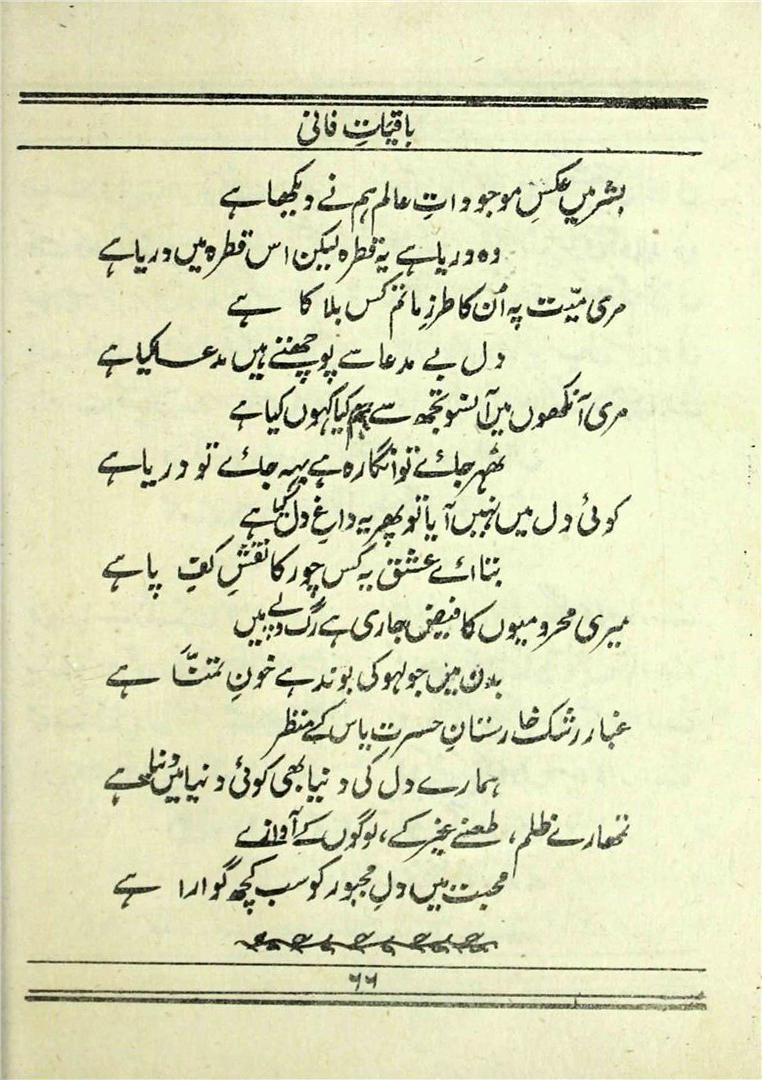 باقیاتِ فانی
بشر میں عکسِ موجوداتِ عالم ہم نے دیکھا ہے
وہ دریا ہے یہ قطرہ لیکن اس قطرہ میں دریا ہے
مری میّت پہ اُن کا طرزِ ماتم کس بلا کا ہے
دل بے مدعا سے پوچھتے ہیں مدعا کیا ہے
مری آنکھوں میں آنسو تجھ سے ہم کیا کہوں کیا ہے
ٹھہر جائے تو انگارہ ہے بہہ جائے تو دریا ہے
کوئی دل میں نہیں آیا تو پھر یہ داغِ دل کیا ہے
بتا اے عشق یہ کس چور کا نقشِ کفِ پا ہے
میری محرومیوں کا فیض جاری ہے رگ و پے میں
بدن میں جو لہو کی بوند ہے خونِ تمنّا ہے
غبار رشک خارستانِ حسرتِ یاس کے منظر
ہمارے دل کی دنیا بھی کوئی دنیا میں دنیا ہے
تمھارے ظلم، طعنے غیر کے، لوگوں کے آوازے
محبت میں دلِ مجبور کو سب کچھ گوارا ہے
۶۶